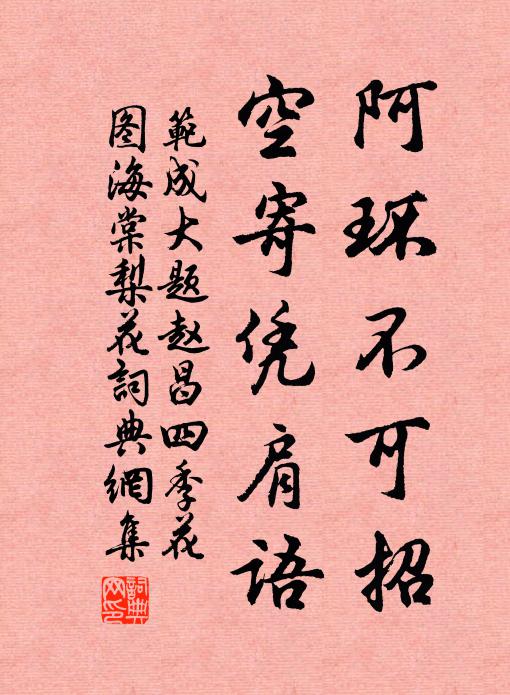 阿环不可招
空寄凭肩语
範成大题赵昌四季花
图海棠梨花詞典網集
詞典网印